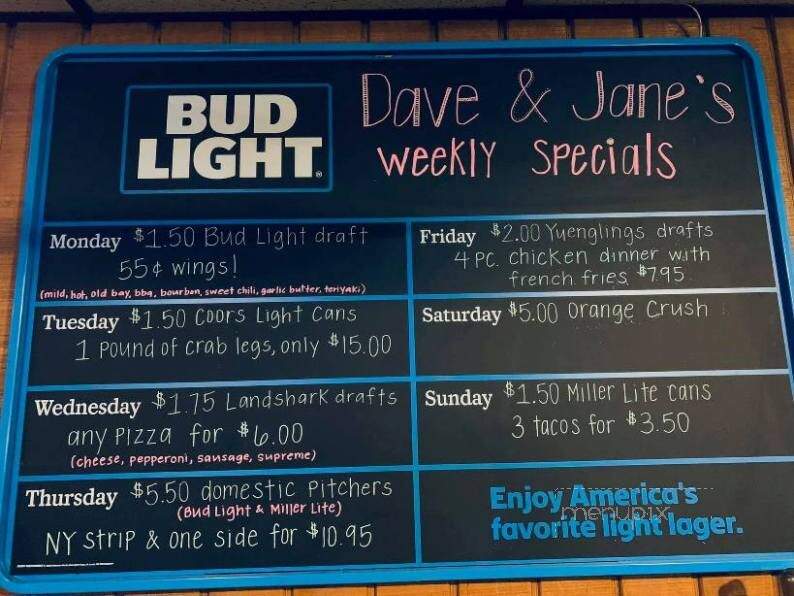 BUD
LIGHT
Dave & Jane's
weekly specials
Monday $1.50 Bud Light draft
55¢ wings!
(mild, hot, old bay, bbq, bourbon, sweet chili, garlic butter, teriyaki)
Tuesday $1.50 Coors Light cans
1 pound of crab legs, only $15.00
Wednesday $1.75 Landshark drafts
any pizza for $6.00
(cheese, pepperoni, sausage, supreme)
Thursday $5.50 domestic pitchers
(Bud Light & Miller Lite)
NY strip & one side for $10.95
Friday $2.00 Yuenglings drafts
4 PC. chicken dinner with
french fries $7.95
Saturday $5.00 Orange Crush
Sunday $1.50 Miller Lite cans
3 tacos for $3.50
Enjoy America's
favorite light lager.
menupix